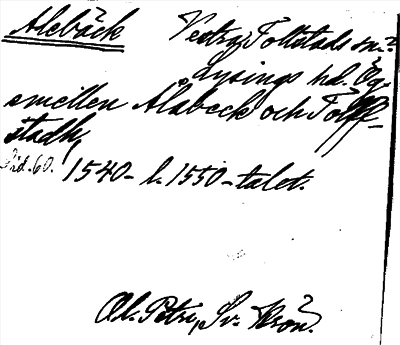 Alebäck Vestra Tollstads sn.?
Lysings hd. Ög.
emellen Alabeck och Tolff-
stadh,
Sid. 60. 1540- l. 1550-talet.
Ol. Petri, Sv. Krön.